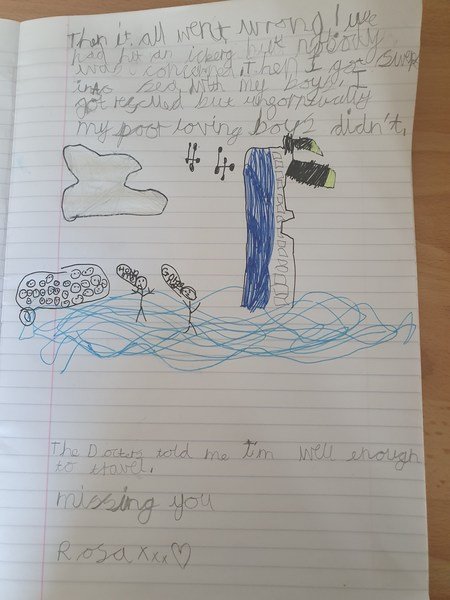 Then it all went wrong! We
had hit an iceberg but nobody
was concerned. Then I got swept
into sea with my boys. I
got rescued but ungortually
my poor loving boy2 didn't.
The Doctors told me I'm well enough
to travel.
missing you
Rosa xxx♡